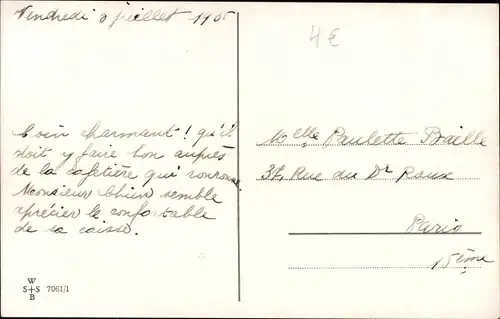 Vendredi 8 juillet 1905
4€
Coin charmant ! qu'il
doit y faire bon auprès
de la cafetière qui ronronne
Monsieur Chien semble
aprécier le confortable
de sa caisse.
Melle Paulette Baille
37, Rue du Dr Roux
Paris
15ème
W
S+S
B
7061/1